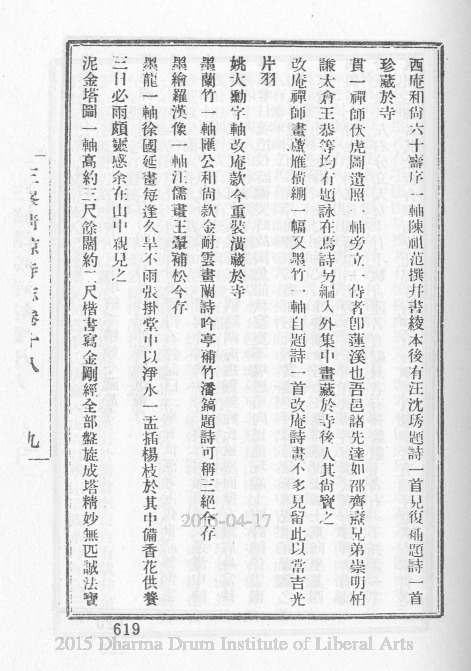 西庵和尚六十壽序一軸陳祖范撰幷書綾本後有汪沈琇題詩一首見復補題詩一首
珍藏於寺
貫一禪師伏虎圖遺照一軸旁立一侍者卽蓮溪也吾邑諸先達如邵齊燾兄弟崇明柏
謙太倉王恭等均有題詠在焉詩另編入外集中畫藏於寺後人其尙寶之
改庵禪師畫蘆雁橫綳一幅又墨竹一軸自題詩一首改庵詩畫不多見留此以當吉光
片羽
姚大勳字軸改庵款今重裝潢藏於寺
墨蘭竹一軸匯公和尚款金耐雲畫蘭詩吟亭補竹潘鎬題詩可稱三絕今存
墨繪羅漢像一軸汪儒畫王翬補松今存
墨龍一軸徐國延畫每逢久旱不雨張掛堂中以淨水一盂插楊枝於其中備香花供養
三日必雨頗靈感余在山中親見之
泥金塔圖一軸高約三尺餘闊約二尺楷書寫金剛經全部盤旋成塔精妙無匹誠法寶
三峯清凉寺志卷十八
九
619
2015-04-17
2015 Dharma Drum Institute of Liberal Arts